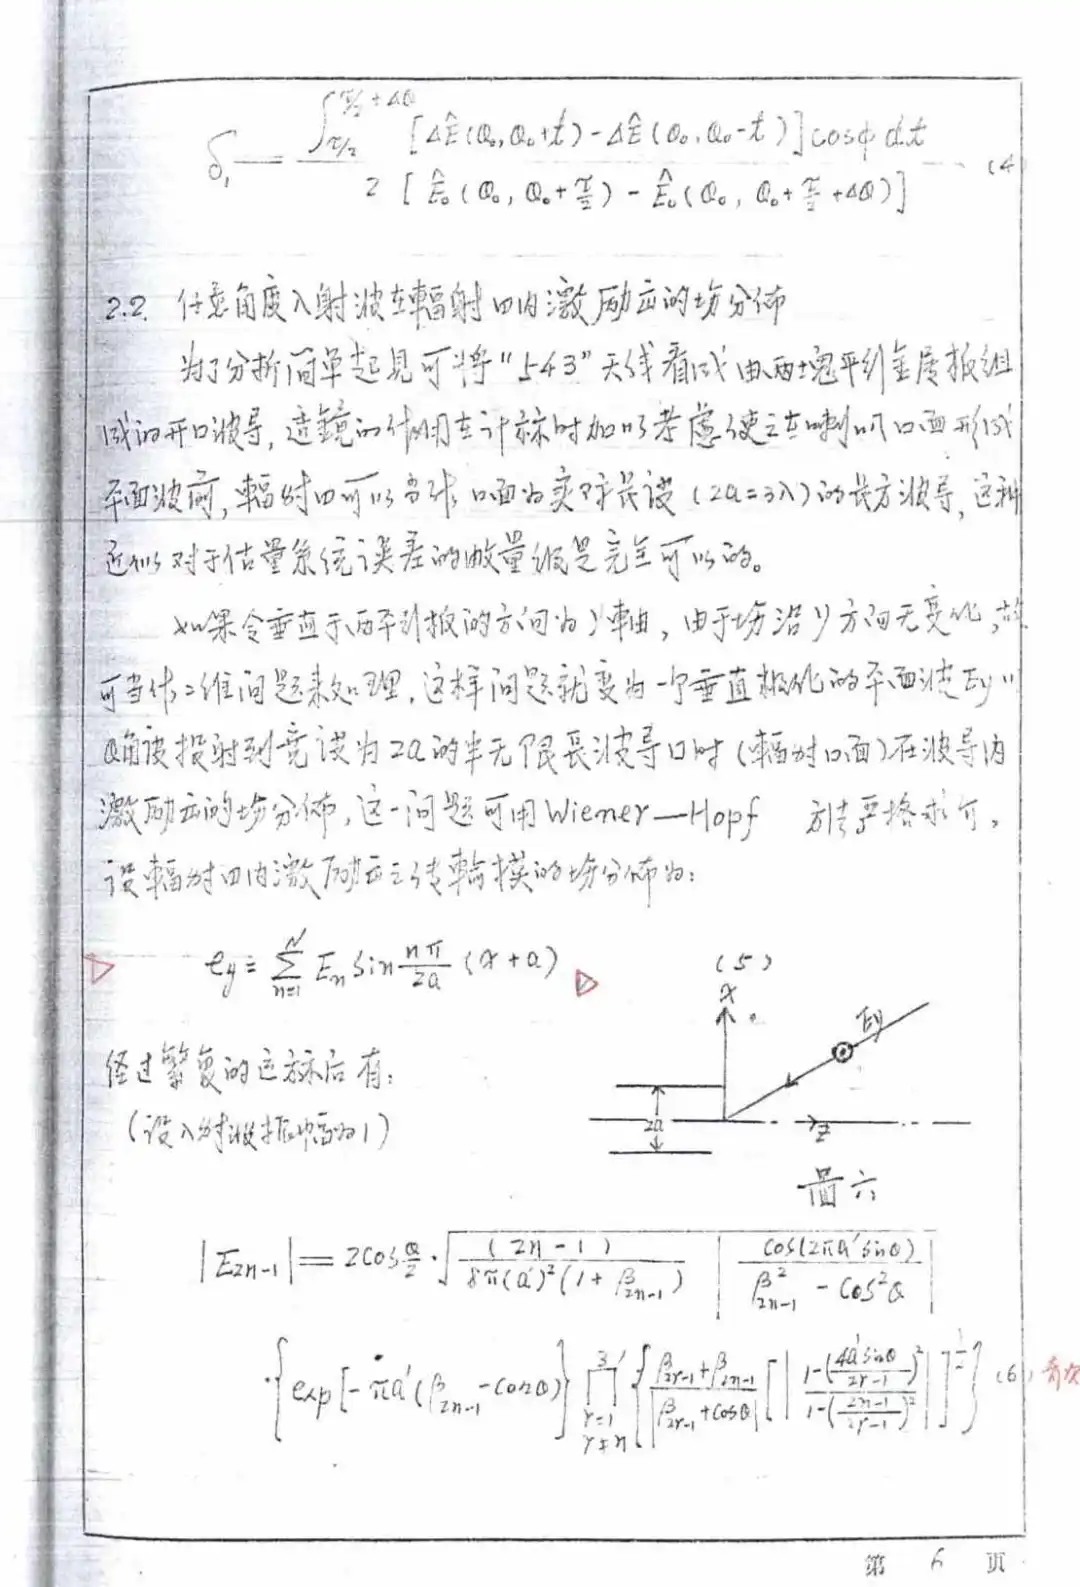 δ₁ = ∫_{π/2}^{π/2+Δθ} [ΔÊ(θ₀,θ₀+t)-ΔÊ(θ₀,θ₀-t)]cosφ dt / 2[Ê₀(θ₀,θ₀+π/2)-Ê₀(θ₀,θ₀+π/2+Δθ)] ---- (4
2.2. 任意角度入射波在辐射口内激励出的场分佈
为了分析简单起见可将"543"天线看成由两块平行金属板组
成的开口波导,透鏡的作用在计标时加以考虑使之在喇叭口面形成
平面波前,辐射口可以当作口面为 (2a=3λ)的长方波导,这种
近似对于估量系统误差的数量级是完全可以的。
如果令垂直于两平行板的方向为y轴,由于场沿y方向无变化,故
可当作二维问题来处理,这样问题就变为一个垂直极化的平面波Ey以
θ角度投射到宽 为2a的半无限長波导口时(辐射口面)在波导内
激励出的场分佈,这一问题可用Wiener—Hopf 方法严格求介。
设辐射口内激励出之传输模的场分佈为:
e_y=Σ_{n=1}^{N} E_n Sin nπ/2a (x+a) (5)
x
Ey
经过繁复的运标后有:
(设入射波振幅为1)
2a
z
图六
|E_{2n-1}|=2cos θ/2 · √((2n-1)/(8π(a')²(1+β_{2n-1}))) |cos(2πa'sinθ)/(β²_{2n-1}-cos²θ)|
·{exp[-πa'(β_{2n-1}-cosθ)} ∏_{r=1, r≠n}^{3'} {(β_{2r-1}+β_{2n-1})/|β_{2r-1}+cosθ| [|(1-(4a'sinθ/(2r-1))²)/(1-((2n-1)/(2r-1))²)|]^{1/2}} (6) 奇次
第 6 页